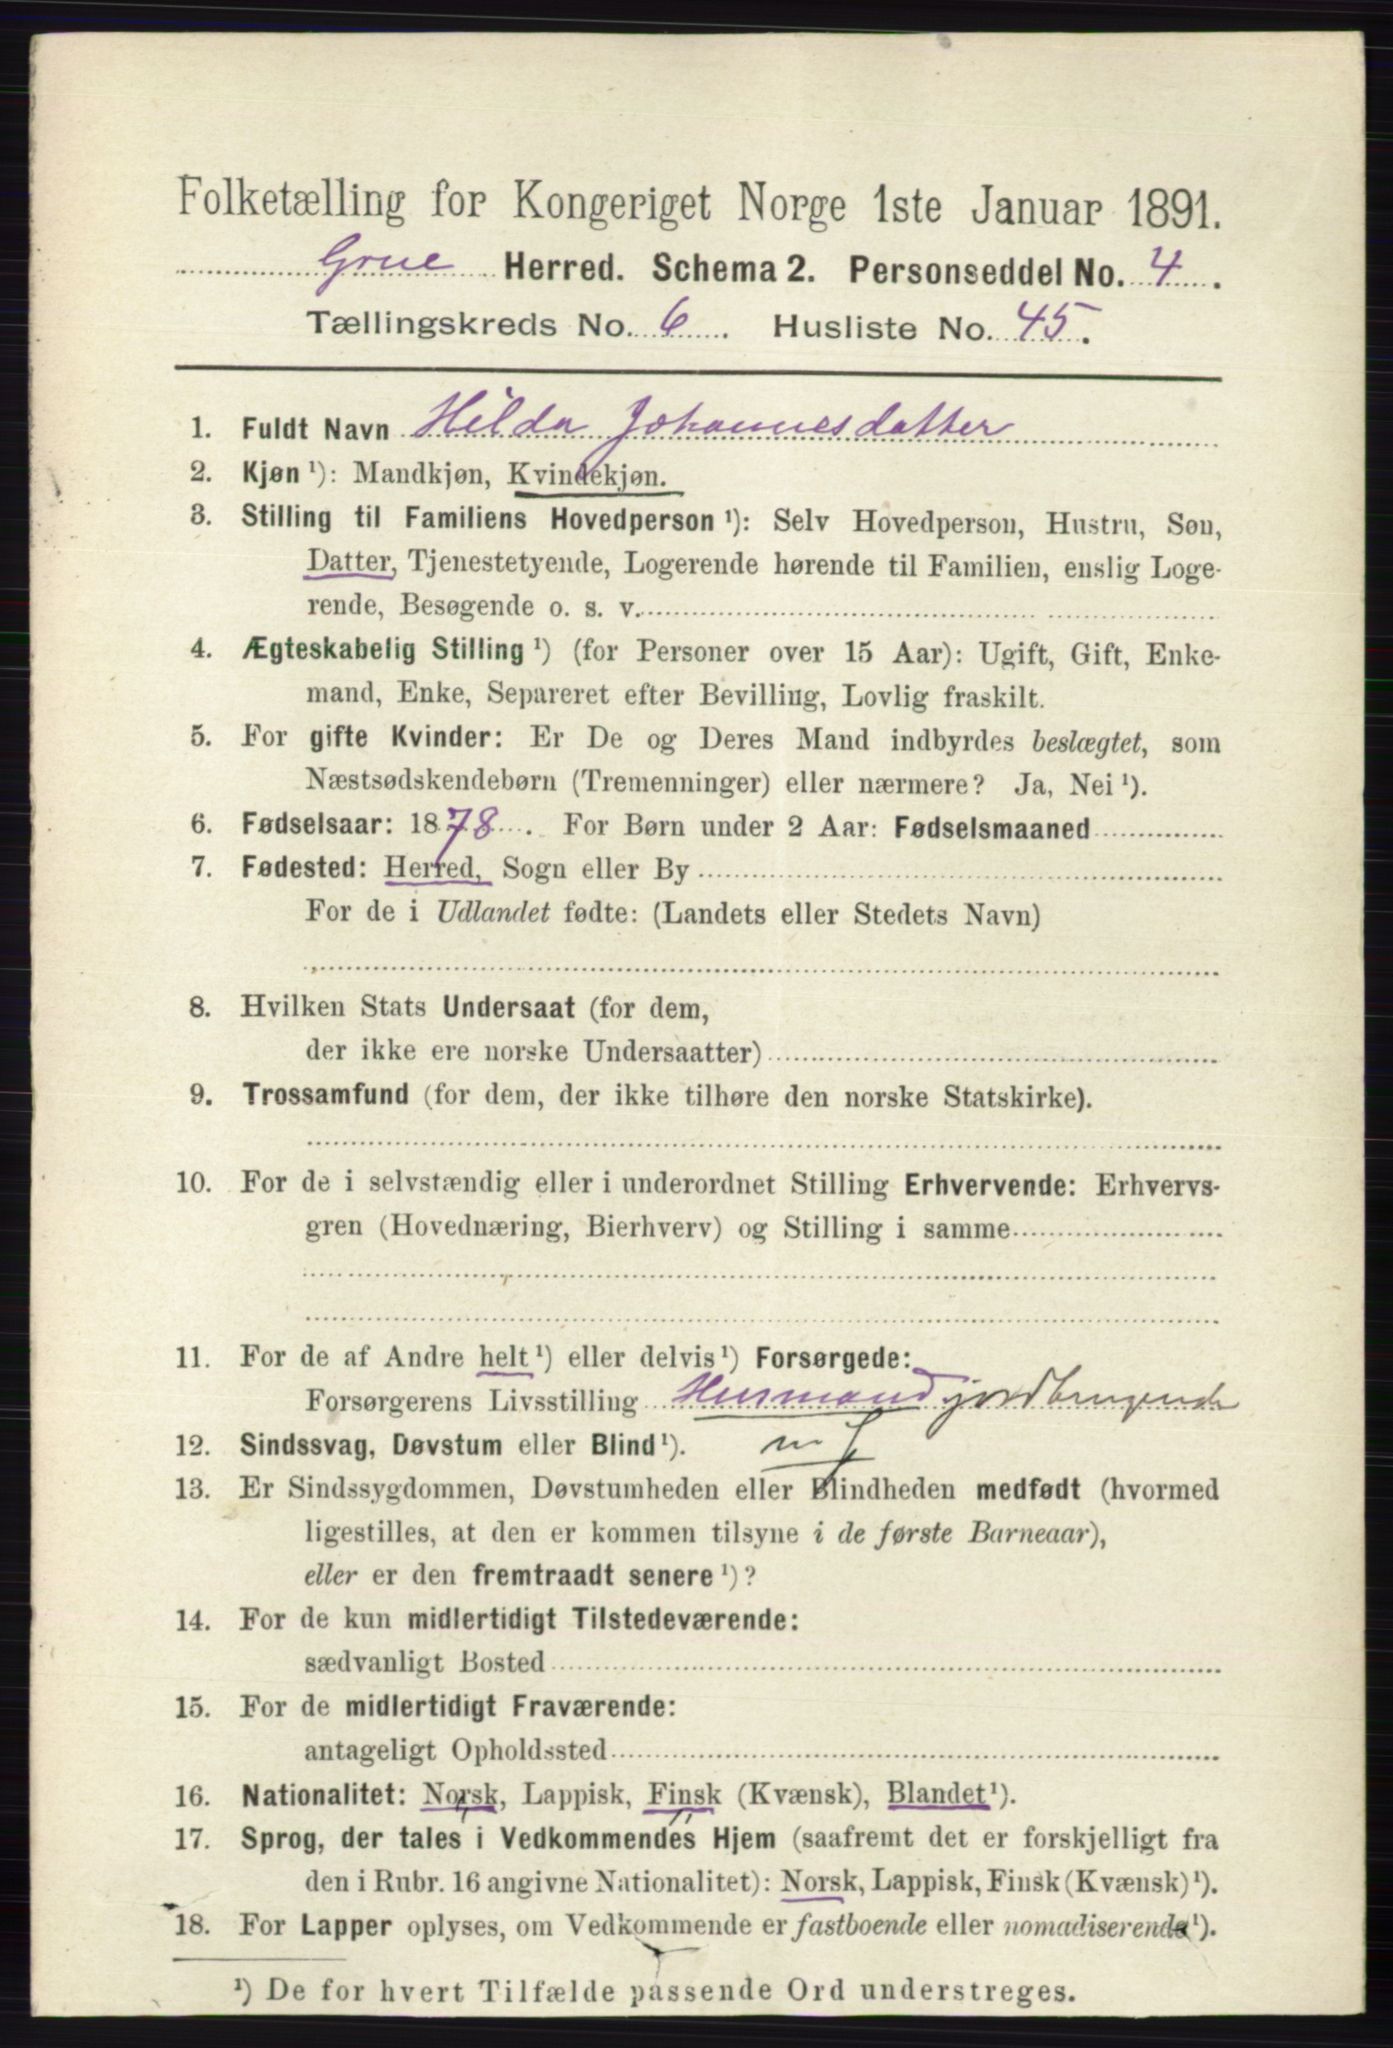 Folketælling for Kongeriget Norge 1ste Januar 1891.
Grue Herred. Schema 2. Personseddel No. 4.
Tællingskreds No. 6. Husliste No. 45.
1. Fuldt Navn Hilda Johannesdatter
2. Kjøn ¹): Mandkjøn, Kvindekjøn.
3. Stilling til Familiens Hovedperson ¹): Selv Hovedperson, Hustru, Søn,
Datter, Tjenestetyende, Logerende hørende til Familien, enslig Loge-
rende, Besøgende o. s. v.
4. Ægteskabelig Stilling ¹) (for Personer over 15 Aar): Ugift, Gift, Enke-
mand, Enke, Separeret efter Bevilling, Lovlig fraskilt.
5. For gifte Kvinder: Er De og Deres Mand indbyrdes beslægtet, som
Næstsødskendebørn (Tremenninger) eller nærmere? Ja, Nei ¹).
6. Fødselsaar: 1878. For Børn under 2 Aar: Fødselsmaaned
7. Fødested: Herred, Sogn eller By
For de i Udlandet fødte: (Landets eller Stedets Navn)
8. Hvilken Stats Undersaat (for dem,
der ikke ere norske Undersaatter)
9. Trossamfund (for dem, der ikke tilhøre den norske Statskirke).
10. For de i selvstændig eller i underordnet Stilling Erhvervende: Erhvervs-
gren (Hovednæring, Bierhverv) og Stilling i samme
11. For de af Andre helt ¹) eller delvis ¹) Forsørgede:
Forsørgerens Livsstilling Husmand jordbrugende
12. Sindssvag, Døvstum eller Blind ¹). m J
13. Er Sindssygdommen, Døvstumheden eller Blindheden medfødt (hvormed
ligestilles, at den er kommen tilsyne i de første Barneaar),
eller er den fremtraadt senere ¹)?
14. For de kun midlertidigt Tilstedeværende:
sædvanligt Bosted
15. For de midlertidigt Fraværende:
antageligt Opholdssted
16. Nationalitet: Norsk, Lappisk, Finsk (Kvænsk), Blandet ¹).
17. Sprog, der tales i Vedkommendes Hjem (saafremt det er forskjelligt fra
den i Rubr. 16 angivne Nationalitet): Norsk, Lappisk, Finsk (Kvænsk) ¹).
18. For Lapper oplyses, om Vedkommende er fastboende eller nomadiserende ¹).
¹) De for hvert Tilfælde passende Ord understreges.